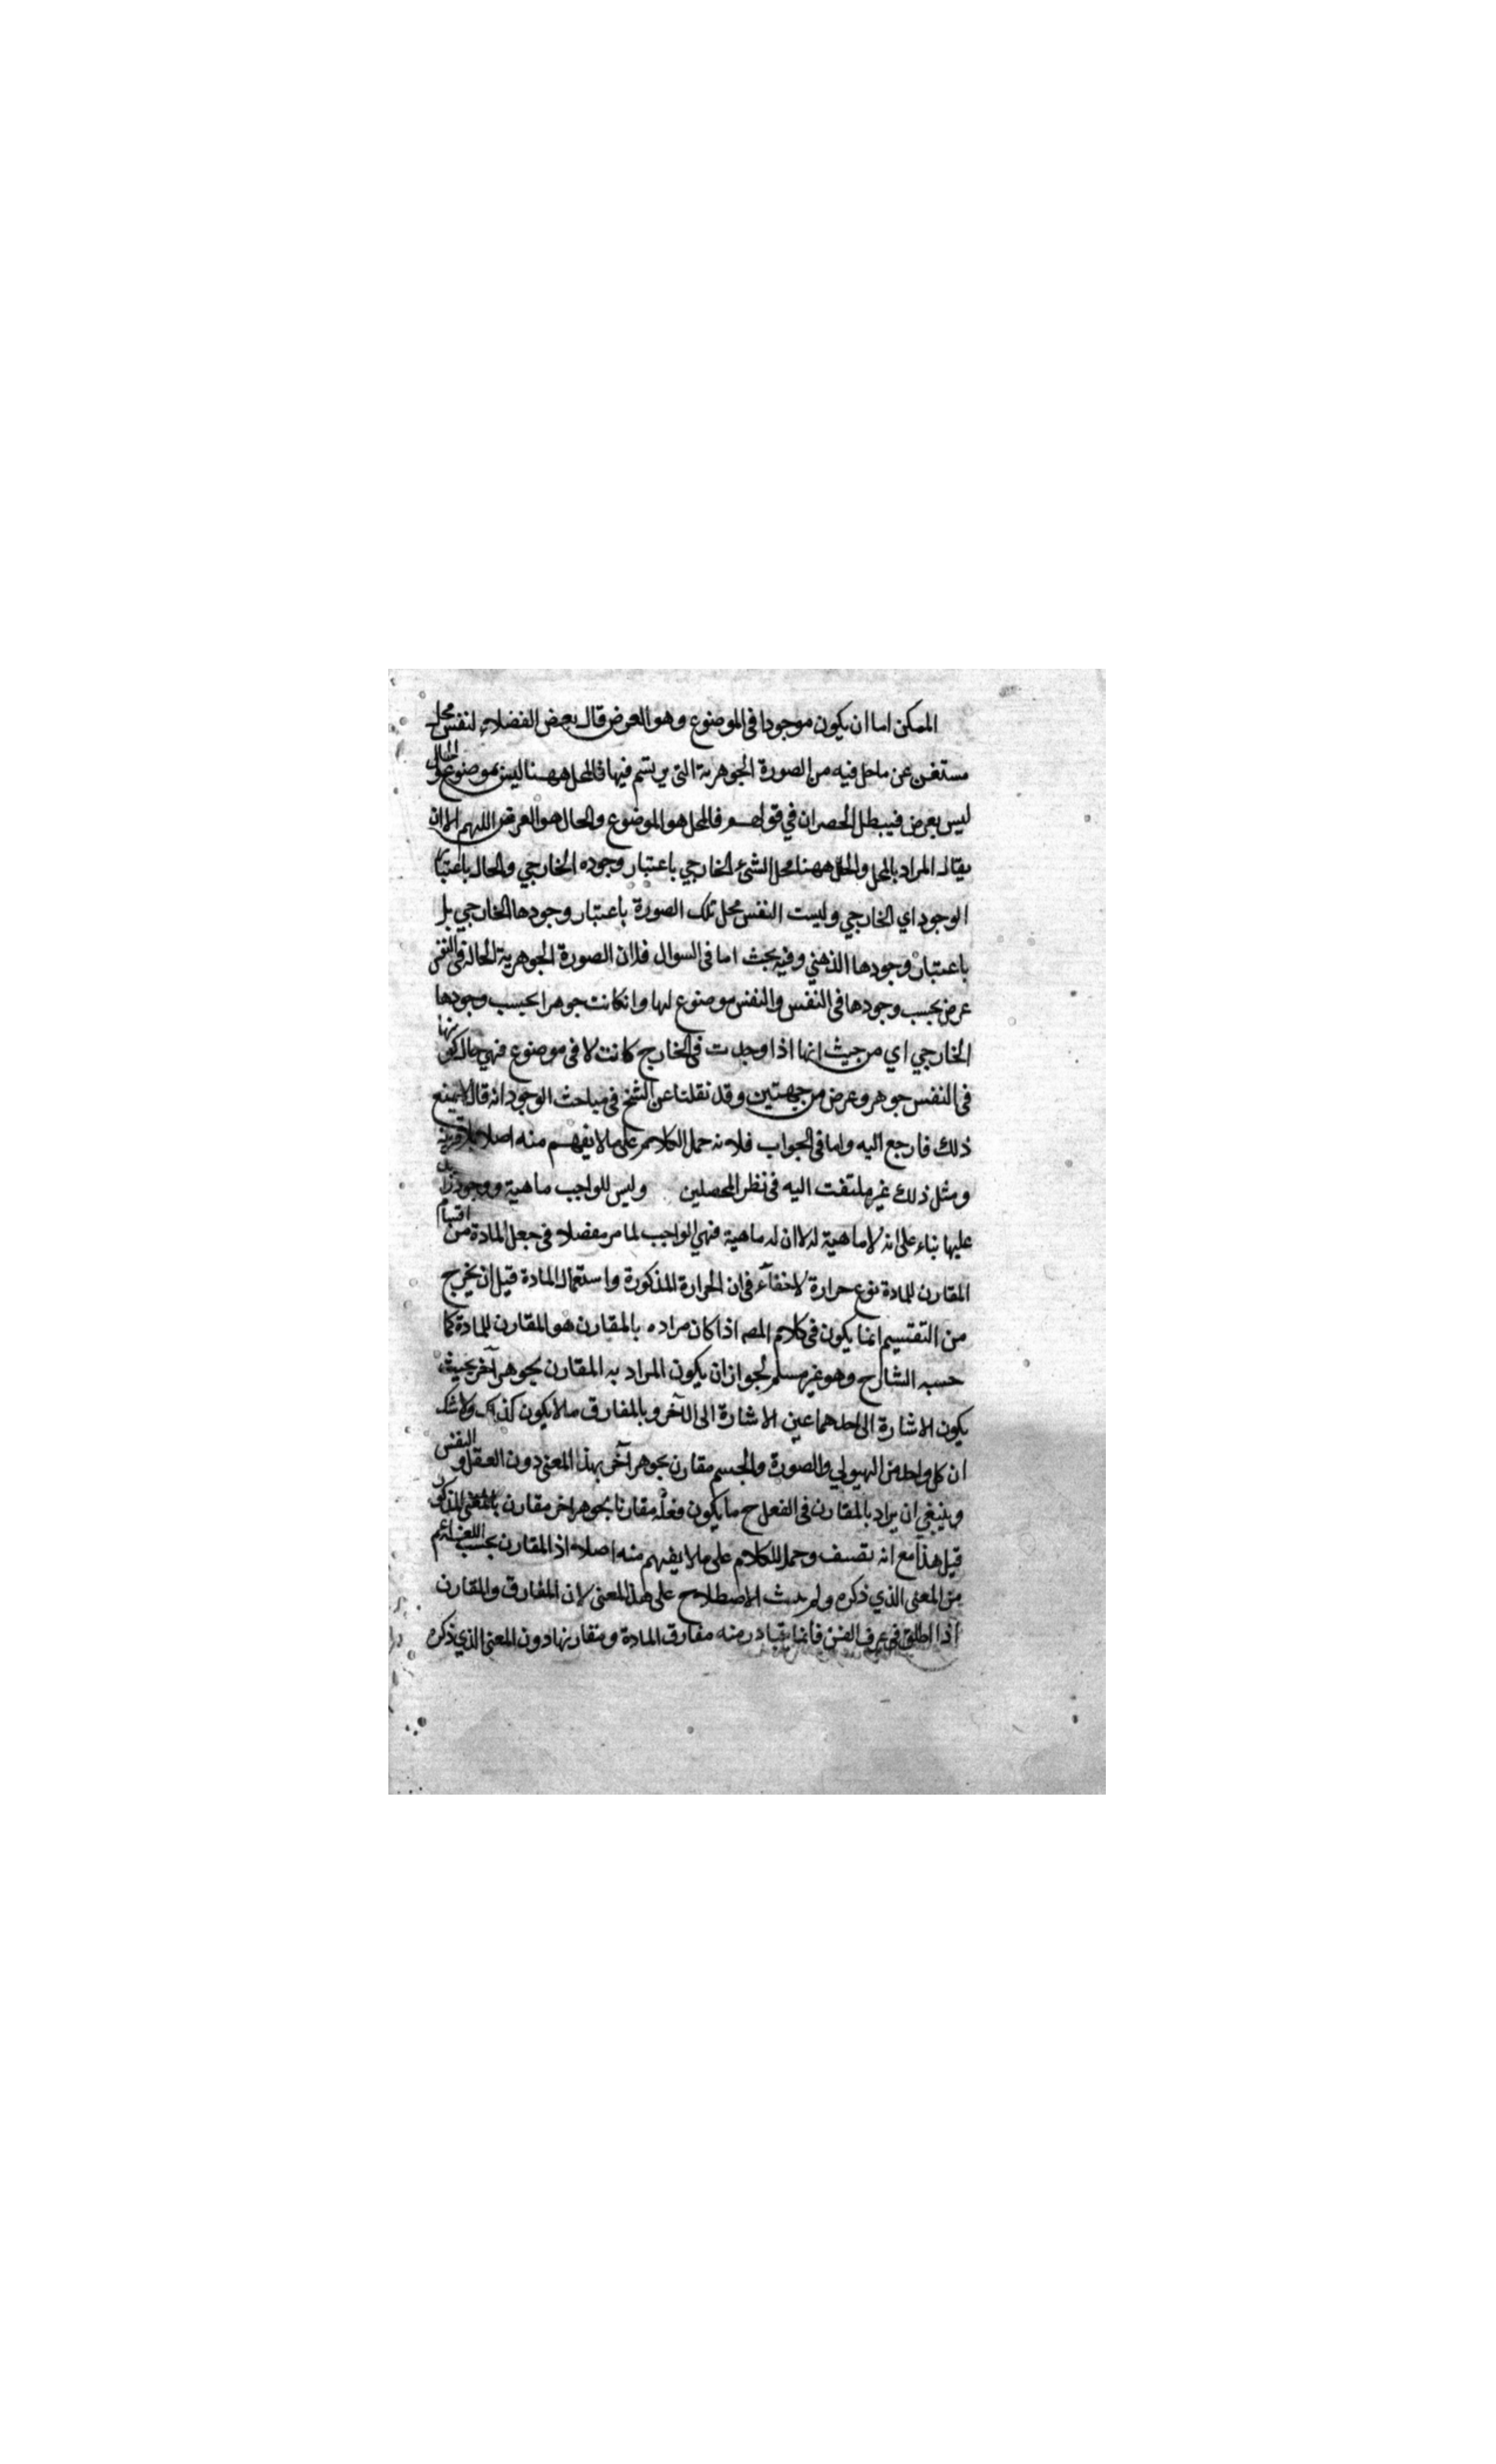 الممكن اما ان يكون موجودا في الموضوع وهو العرض قال بعض الفضلاء لنفس محل
مستغن عن ما حل فيه من الصورة الجوهرية التي يرتسم فيها فالمحل ههنا ليس بموضوع والحال
ليس بعرض فيبطل الحصران في قولهم فالمحل هو الموضوع والحال هو العرض اللهم الا ان
يقال المراد بالمحل والحل ههنا محل الشئ الخارجي باعتبار وجوده الخارجي والحال باعتبار
الوجود اي الخارجي وليست النفس محل تلك الصورة باعتبار وجودها الخارجي بل
باعتبار وجودها الذهني وفيه بحث اما في السوال فلان الصورة الجوهرية الحالة في النفس
عرض بحسب وجودها في النفس والنفس موضوع لها وان كانت جوهرا بحسب وجودها
الخارجي اي من حيث انها اذا وجدت في الخارج كانت لا في موضوع فهي حال كونها
في النفس جوهر وعرض من جهتين وقد نقلنا عن الشخ في مباحث الوجود انه قال لا يمنع
ذلك فارجع اليه واما في الجواب فلانه حمل الكلام على ما لا يفهم منه اصلا بلا قرينة
ومثل ذلك غير ملتفت اليه في نظر المحصلين وليس للواجب ماهية ووجود زايد
عليها بناء على انه لا ماهية له لا ان له ماهية فهي الواجب لما مر مفصلا في جعل المادة من اقسام
المقارن للمادة نوع حرارة لا خفآء في ان الحرارة المذكورة واستعمال المادة قيل ان يخرج
من التقسيم انما يكون في كلام المصه اذا كان مراده بالمقارن هو المقارن للمادة كما
حسبه الشارح وهو غير مسلم لجواز ان يكون المراد به المقارن لجوهر آخر بحيث
يكون الاشارة الى احدهما عين الاشارة الى الآخر وبالمفارق ما لا يكون كذلك ولا شك
ان كل واحد من الهيولي والصورة والجسم مقارن بجوهر آخر بهذا المعنى دون العقل والنفس
وينبغي ان يراد بالمقارن في الفعل ح ما يكون فعله مقارنا بجوهر اخر مقارن بالمعنى المذكور
قيل هذا مع انه تعسف وحمل للكلام على ما لا يفهم منه اصلا اذ المقارن بحسب اللغة اعم
من المعنى الذي ذكره ولم يثبت الاصطلاح على هذا المعنى لان المفارق والمقارن
اذا اطلق في عرف الفن فانما يتبادر منه مفارق المادة ومقارنها دون المعنى الذي ذكره